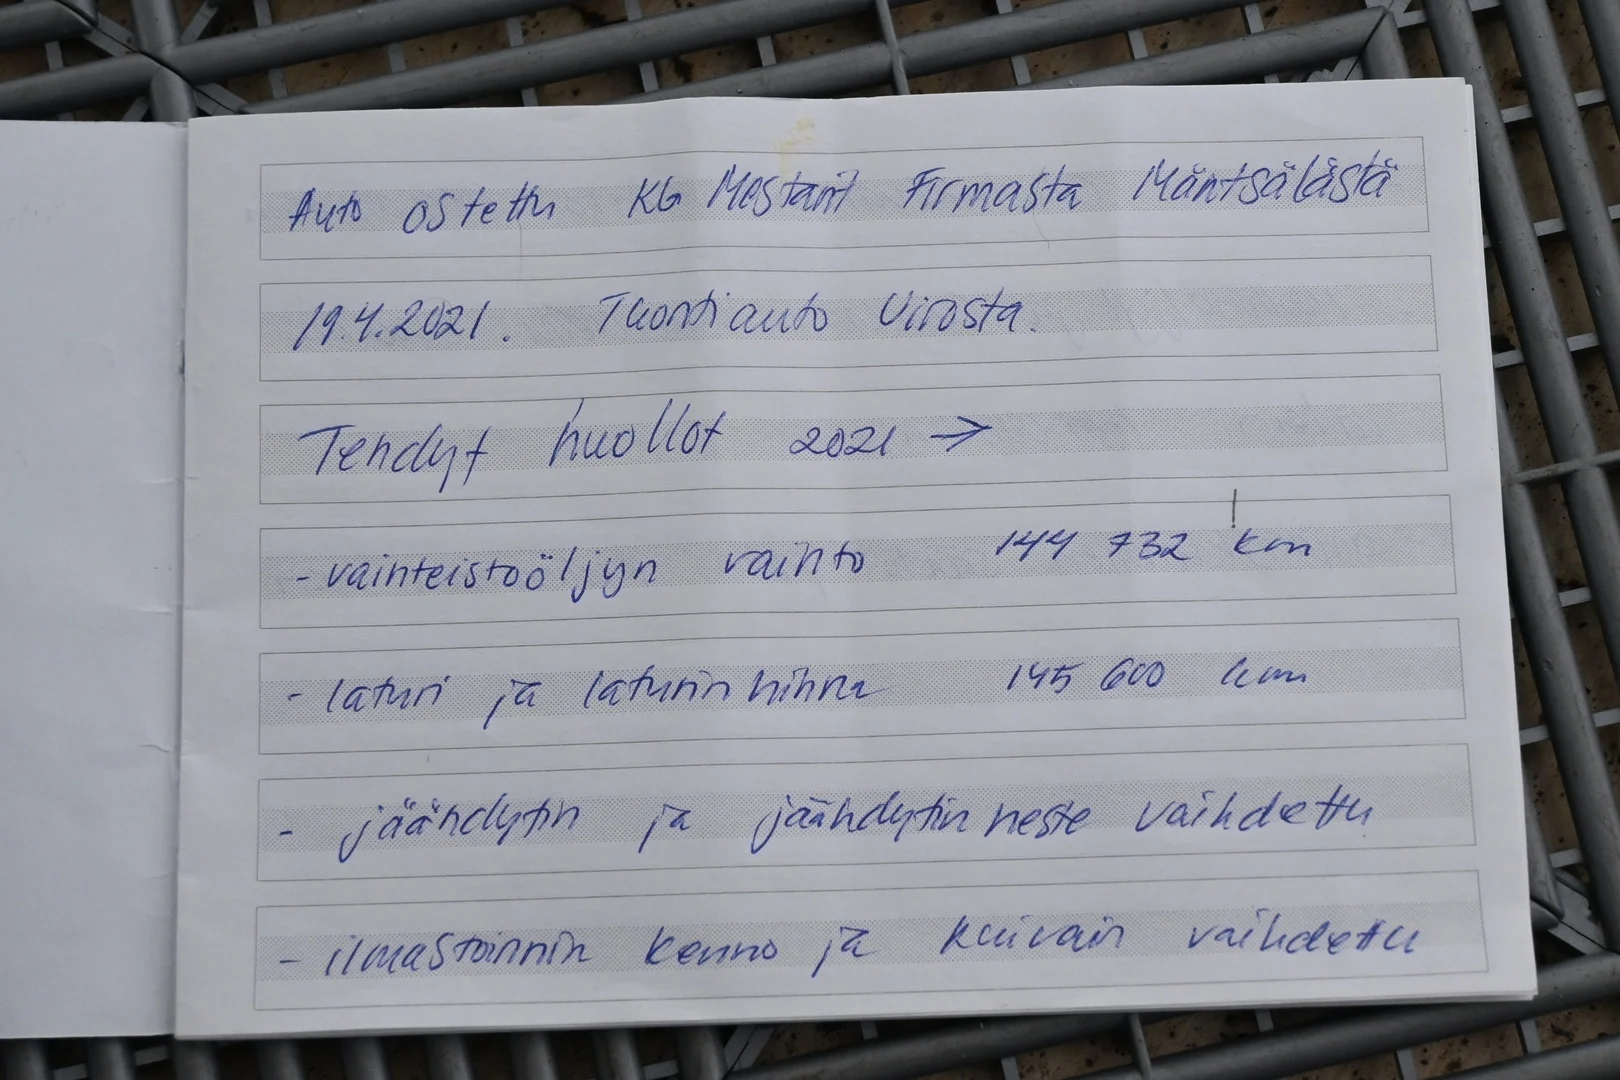 Auto ostettu KG Mestarit Firmasta Mäntsälästä
19.4.2021. Tuontiauto Virosta.
Tehdyt huollot 2021 →
- vainteistoöljyn vaihto 144 732 km
- laturi ja laturin hihna 145 600 km
- jäähdytin ja jäähdytin neste vaihdettu
- ilmastoinnin kenno ja kuivain vaihdettu